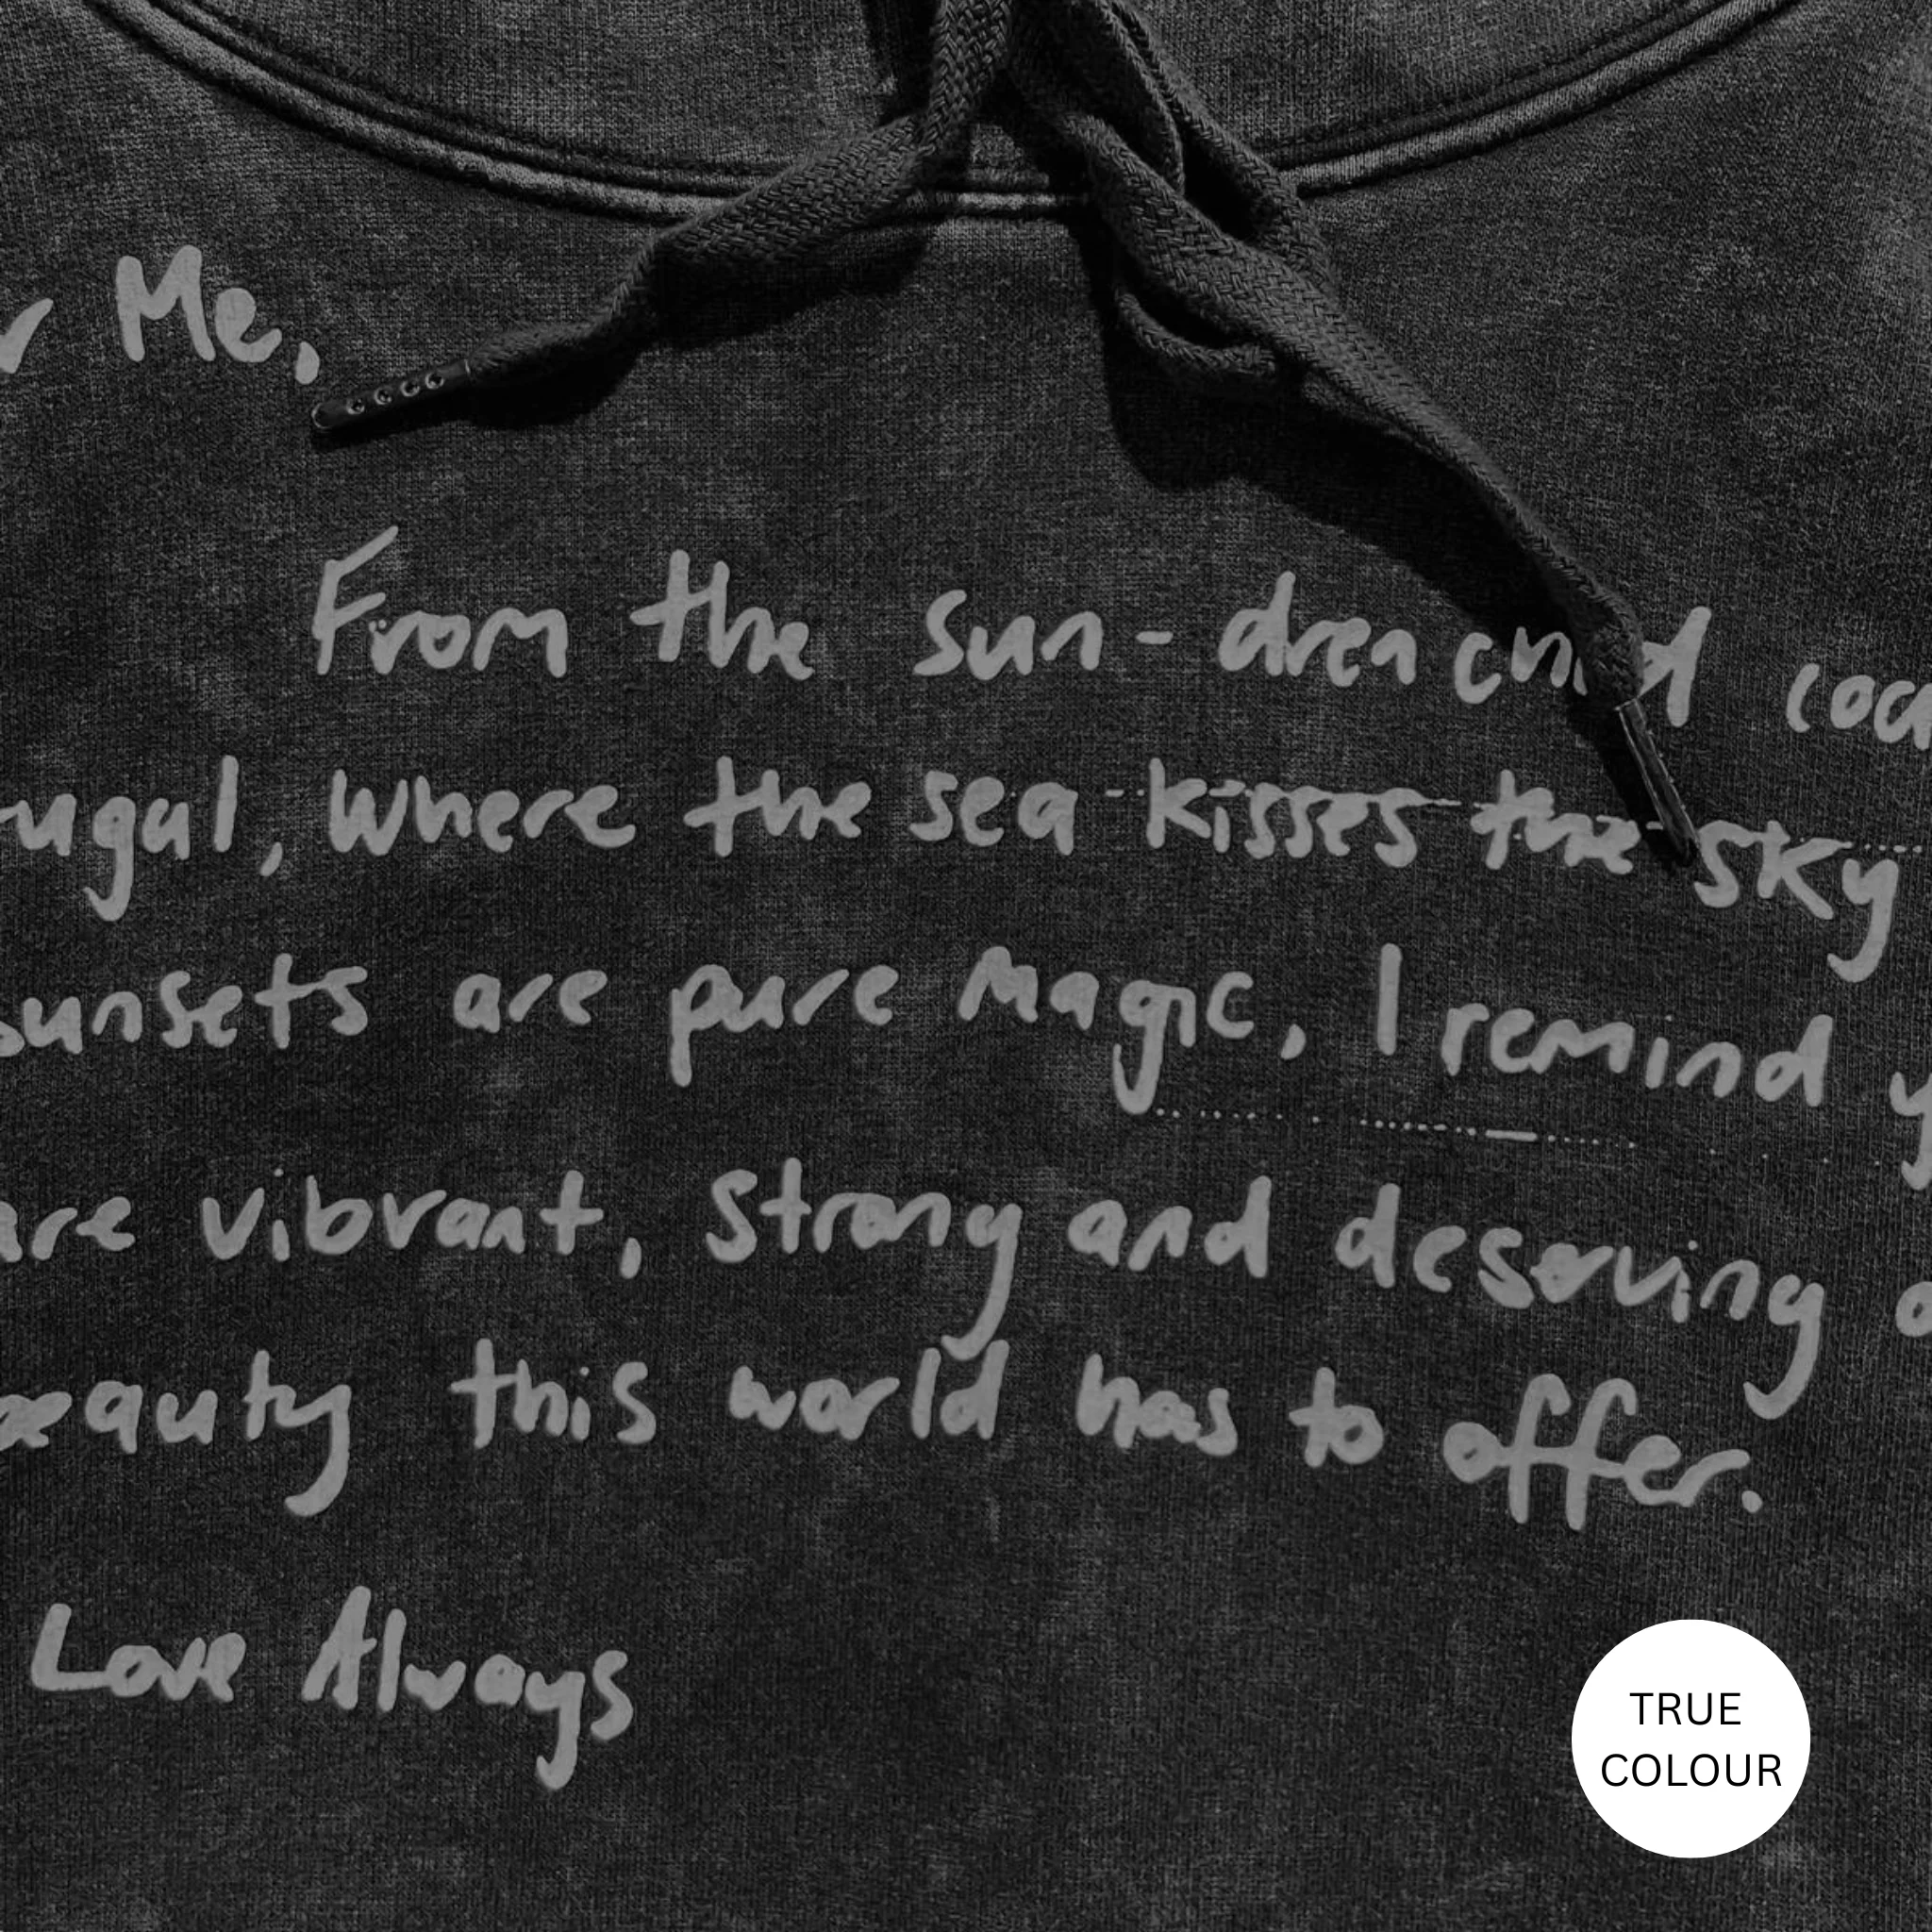 r Me,
From the sun-drenched coa
ugal, where the sea kisses the sky
sunsets are pure magic, I remind y
are vibrant, strong and deserving o
eauty this world has to offer.
Love Always
TRUE
COLOUR